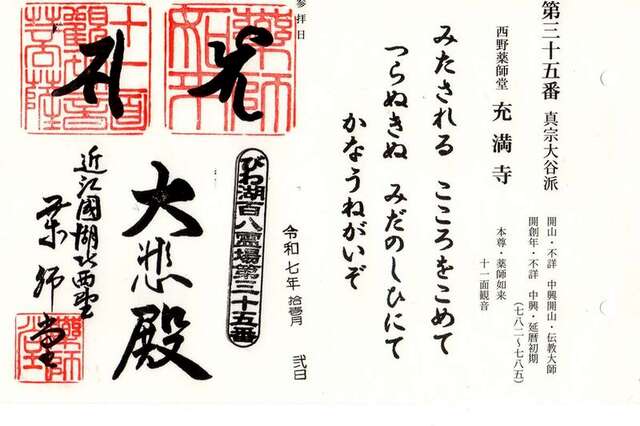 第三十五番 真宗大谷派
開山・不詳 中興開山・伝教大師
開創年・不詳 中興・延暦初期
(七八二〜七八五)
西野薬師堂 充満寺
本尊・薬師如来
十一面観音
みたされる こころをこめて
つらぬきぬ みだのしひにて
かなうねがいぞ
参拝日
令和七年 拾壱月 弐日
びわ湖百八霊場第三十五番
薬師如来
十一面観世音菩薩
大悲殿
近江國湖北西野
薬師堂